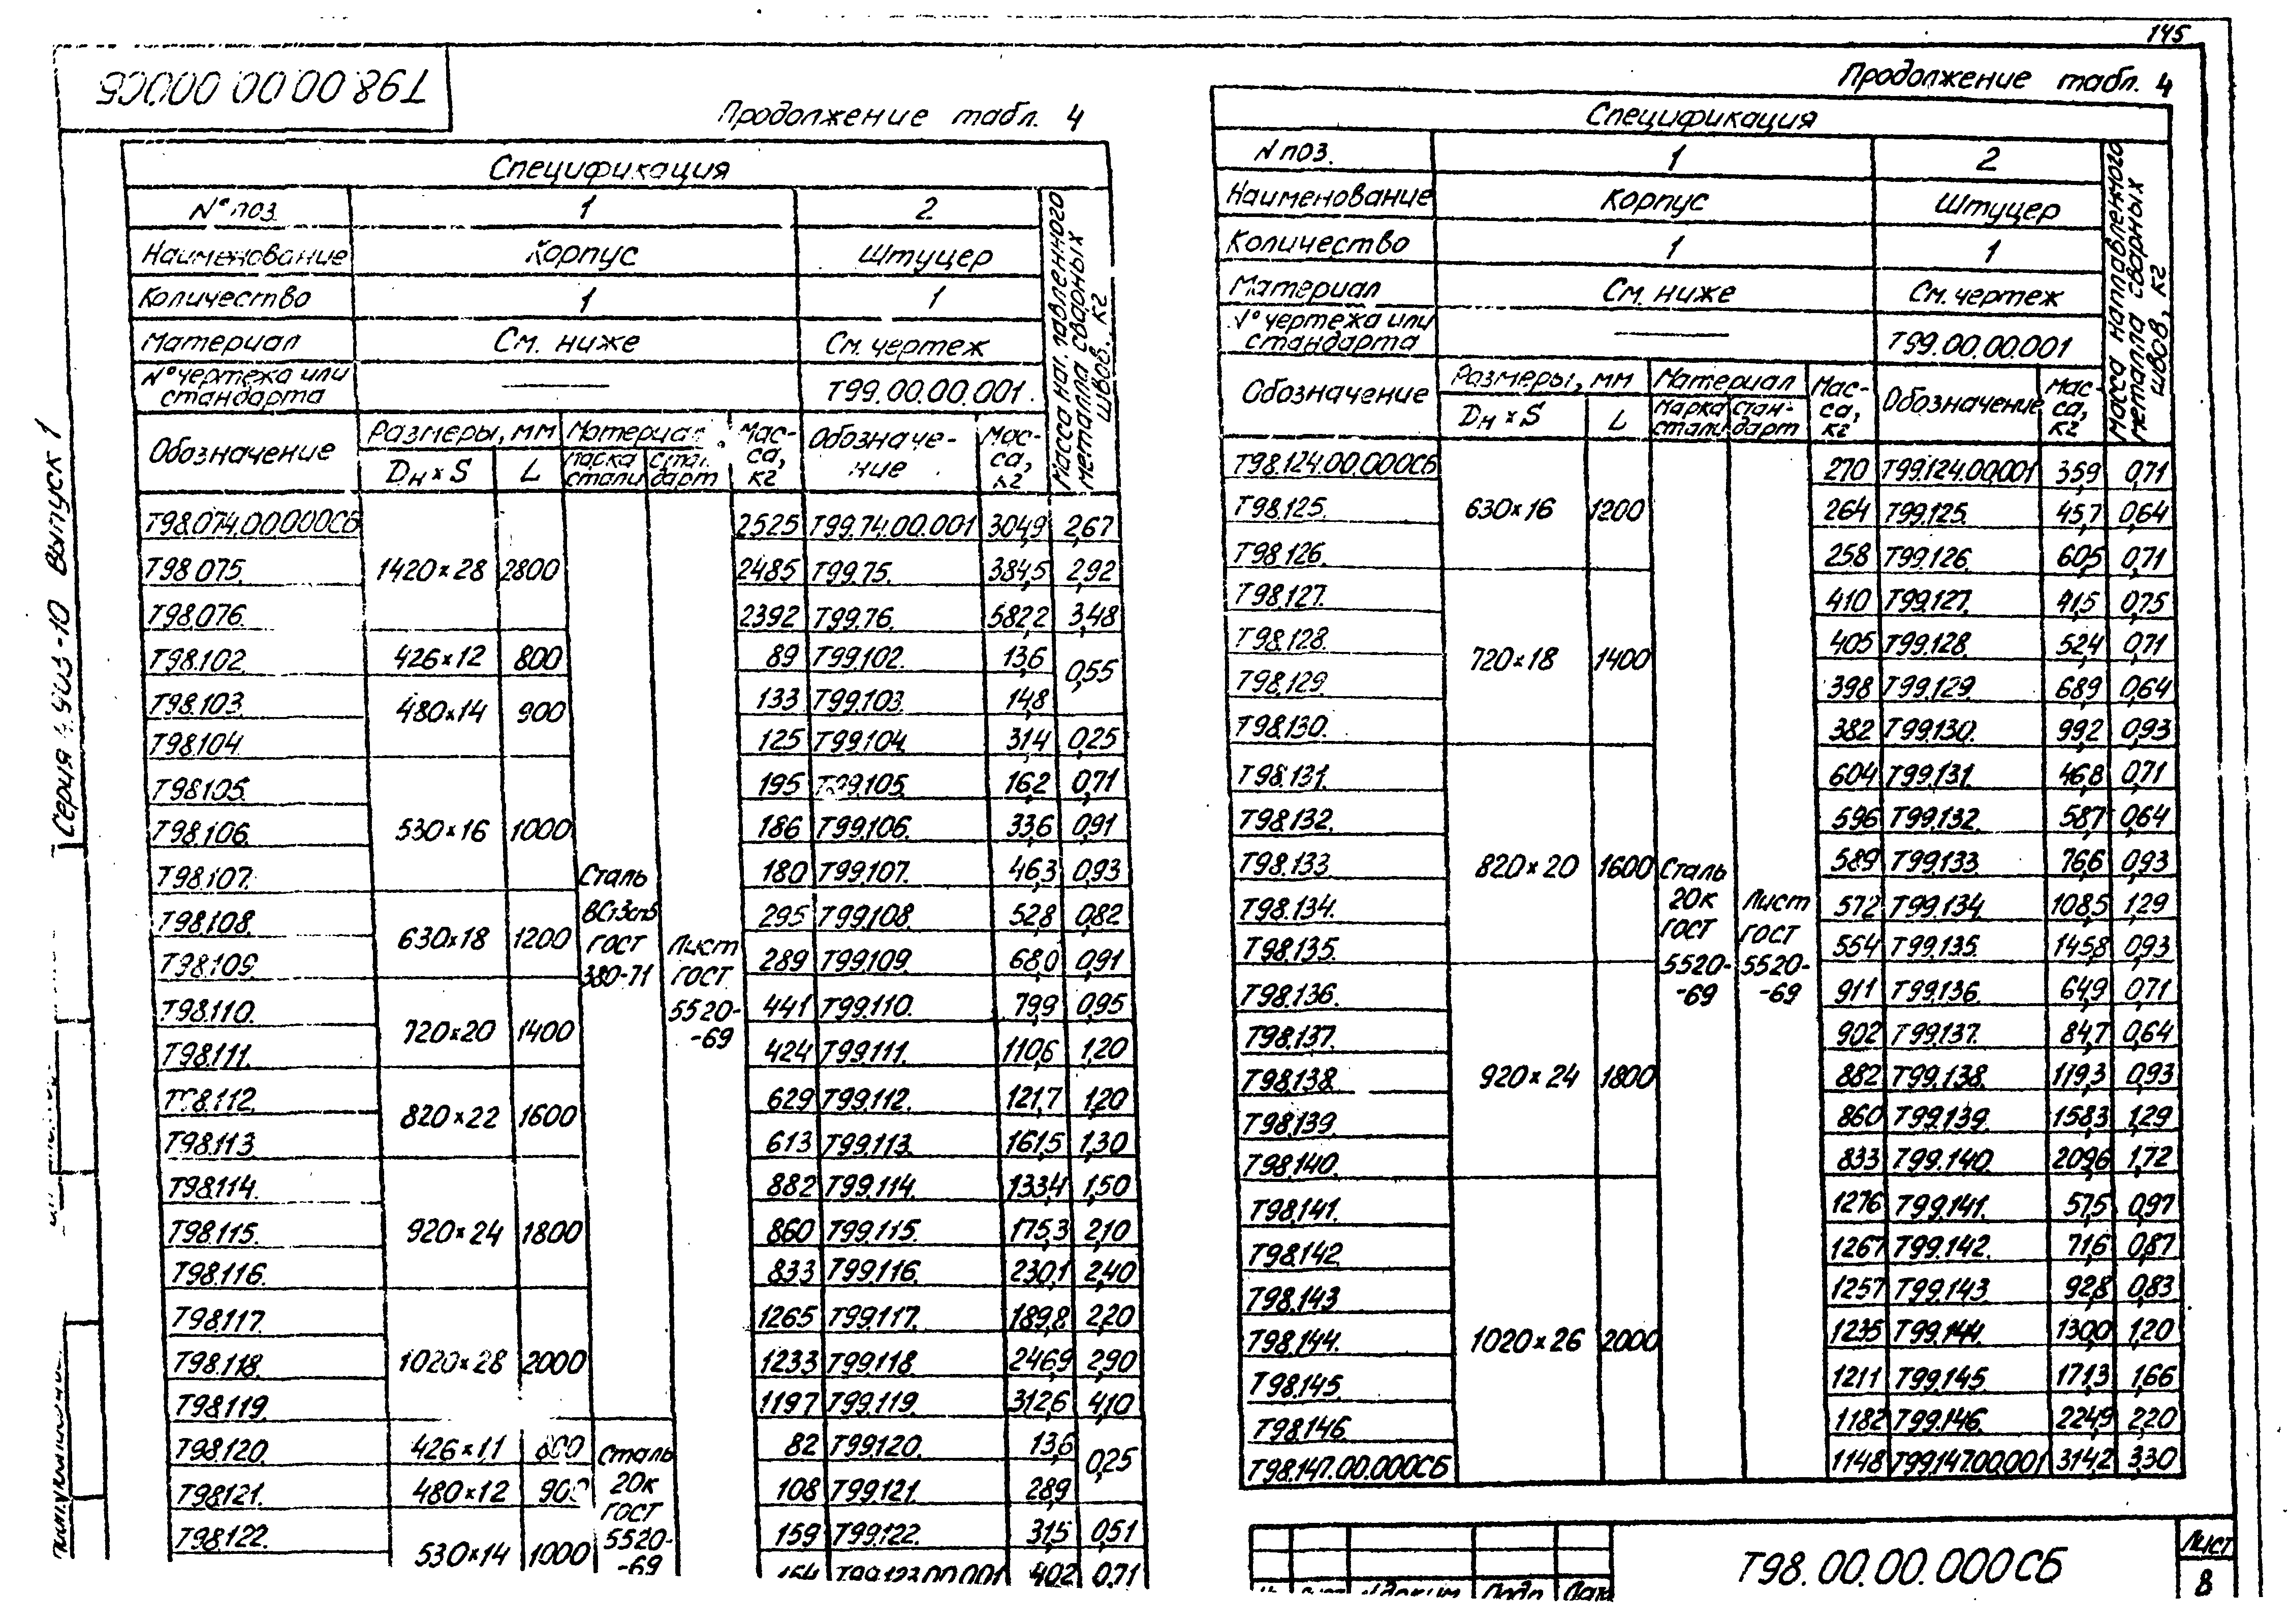 145
Т98.00.00.000СБ
Продолжение табл. 4
Спецификация
№ поз. 1 2
Наименование Корпус Штуцер
Количество 1 1
Материал См. ниже См. чертеж
№ чертежа или стандарта —— Т99.00.00.001.
Обозначение Размеры, мм Материал Масса, кг Обозначение Масса, кг Масса наплавленного металла сварных швов, кг
Dн×S L марка стали стандарт
Т98.074.00.000СБ 2525 Т99.74.00.001 304,9 2,67
Т98.075. 1420×28 2800 2485 Т99.75. 384,5 2,92
Т98.076. 2392 Т99.76. 582,2 3,48
Т98.102. 426×12 800 89 Т99.102. 13,6 0,55
Т98.103. 480×14 900 133 Т99.103. 14,8
Т98.104. 125 Т99.104. 31,4 0,25
Т98.105. 195 Т99.105. 16,2 0,71
Т98.106. 530×16 1000 186 Т99.106. 33,6 0,91
Т98.107. 180 Т99.107. 46,3 0,93
Т98.108. 630×18 1200 295 Т99.108. 52,8 0,82
Т98.109. 289 Т99.109. 68,0 0,91
Т98.110. 720×20 1400 441 Т99.110. 79,9 0,95
Т98.111. 424 Т99.111. 110,6 1,20
Т98.112. 820×22 1600 629 Т99.112. 121,7 1,20
Т98.113. 613 Т99.113. 161,5 1,30
Т98.114. 882 Т99.114. 133,4 1,50
Т98.115. 920×24 1800 860 Т99.115. 175,3 2,10
Т98.116. 833 Т99.116. 230,1 2,40
Т98.117. 1265 Т99.117. 189,8 2,20
Т98.118. 1020×28 2000 1233 Т99.118. 246,9 2,90
Т98.119. 1197 Т99.119. 312,6 4,10
Т98.120. 426×11 800 82 Т99.120. 13,6 0,25
Т98.121. 480×12 900 108 Т99.121. 28,9
Т98.122. 530×14 1000 159 Т99.122. 31,5 0,51
164 Т99.123.00.001 40,2 0,71
Сталь
ВСт3сп5
ГОСТ
380-71
Лист
ГОСТ
5520-
-69
Сталь
20к
ГОСТ
5520-
-69
Серия 4.903-10 Выпуск 1
Продолжение табл. 4
Спецификация
N поз. 1 2
Наименование Корпус Штуцер
Количество 1 1
Материал См. ниже См. чертеж
№ чертежа или стандарта —— Т99.00.00.001
Обозначение Размеры, мм Материал Масса, кг Обозначение Масса, кг Масса наплавленного металла сварных швов, кг
Dн×S L марка стали стандарт
Т98.124.00.000СБ 270 Т99.124.00.001 35,9 0,71
Т98.125. 630×16 1200 264 Т99.125. 45,7 0,64
Т98.126. 258 Т99.126. 60,5 0,71
Т98.127. 410 Т99.127. 41,5 0,75
Т98.128. 720×18 1400 405 Т99.128. 52,4 0,71
Т98.129. 398 Т99.129. 68,9 0,64
Т98.130. 382 Т99.130. 99,2 0,93
Т98.131. 604 Т99.131. 46,8 0,71
Т98.132. 596 Т99.132. 58,7 0,64
Т98.133. 820×20 1600 589 Т99.133. 76,6 0,93
Т98.134. 572 Т99.134. 108,5 1,29
Т98.135. 554 Т99.135. 145,8 0,93
Т98.136. 911 Т99.136. 64,9 0,71
Т98.137. 902 Т99.137. 84,7 0,64
Т98.138. 920×24 1800 882 Т99.138. 119,3 0,93
Т98.139. 860 Т99.139. 158,3 1,29
Т98.140. 833 Т99.140. 209,6 1,72
Т98.141. 1276 Т99.141. 57,5 0,97
Т98.142. 1267 Т99.142. 71,6 0,87
Т98.143. 1257 Т99.143. 92,8 0,83
Т98.144. 1020×26 2000 1235 Т99.144. 130,0 1,20
Т98.145. 1211 Т99.145. 171,3 1,66
Т98.146. 1182 Т99.146. 224,9 2,20
Т98.147.00.000СБ 1148 Т99.147.00.001 314,2 3,30
Сталь
20к
ГОСТ
5520-
-69
Лист
ГОСТ
5520-
-69
Т98.00.00.000СБ
Лист
8